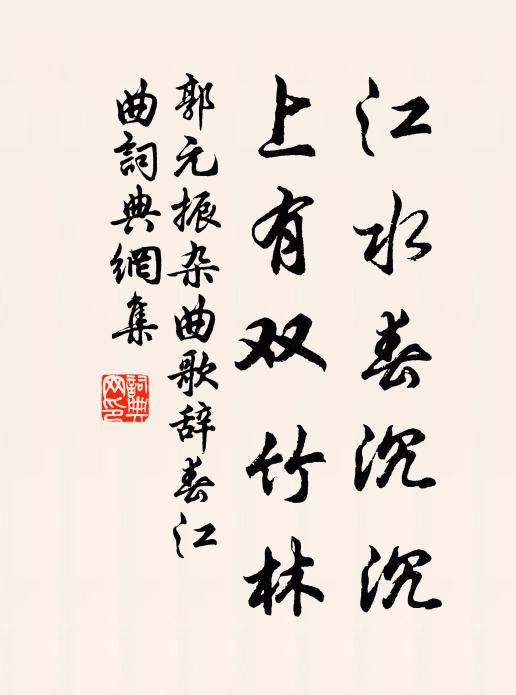 江水春沉沉
上有双竹林
郭元振杂曲歌辞春江
曲詞典網集
詞典
网印